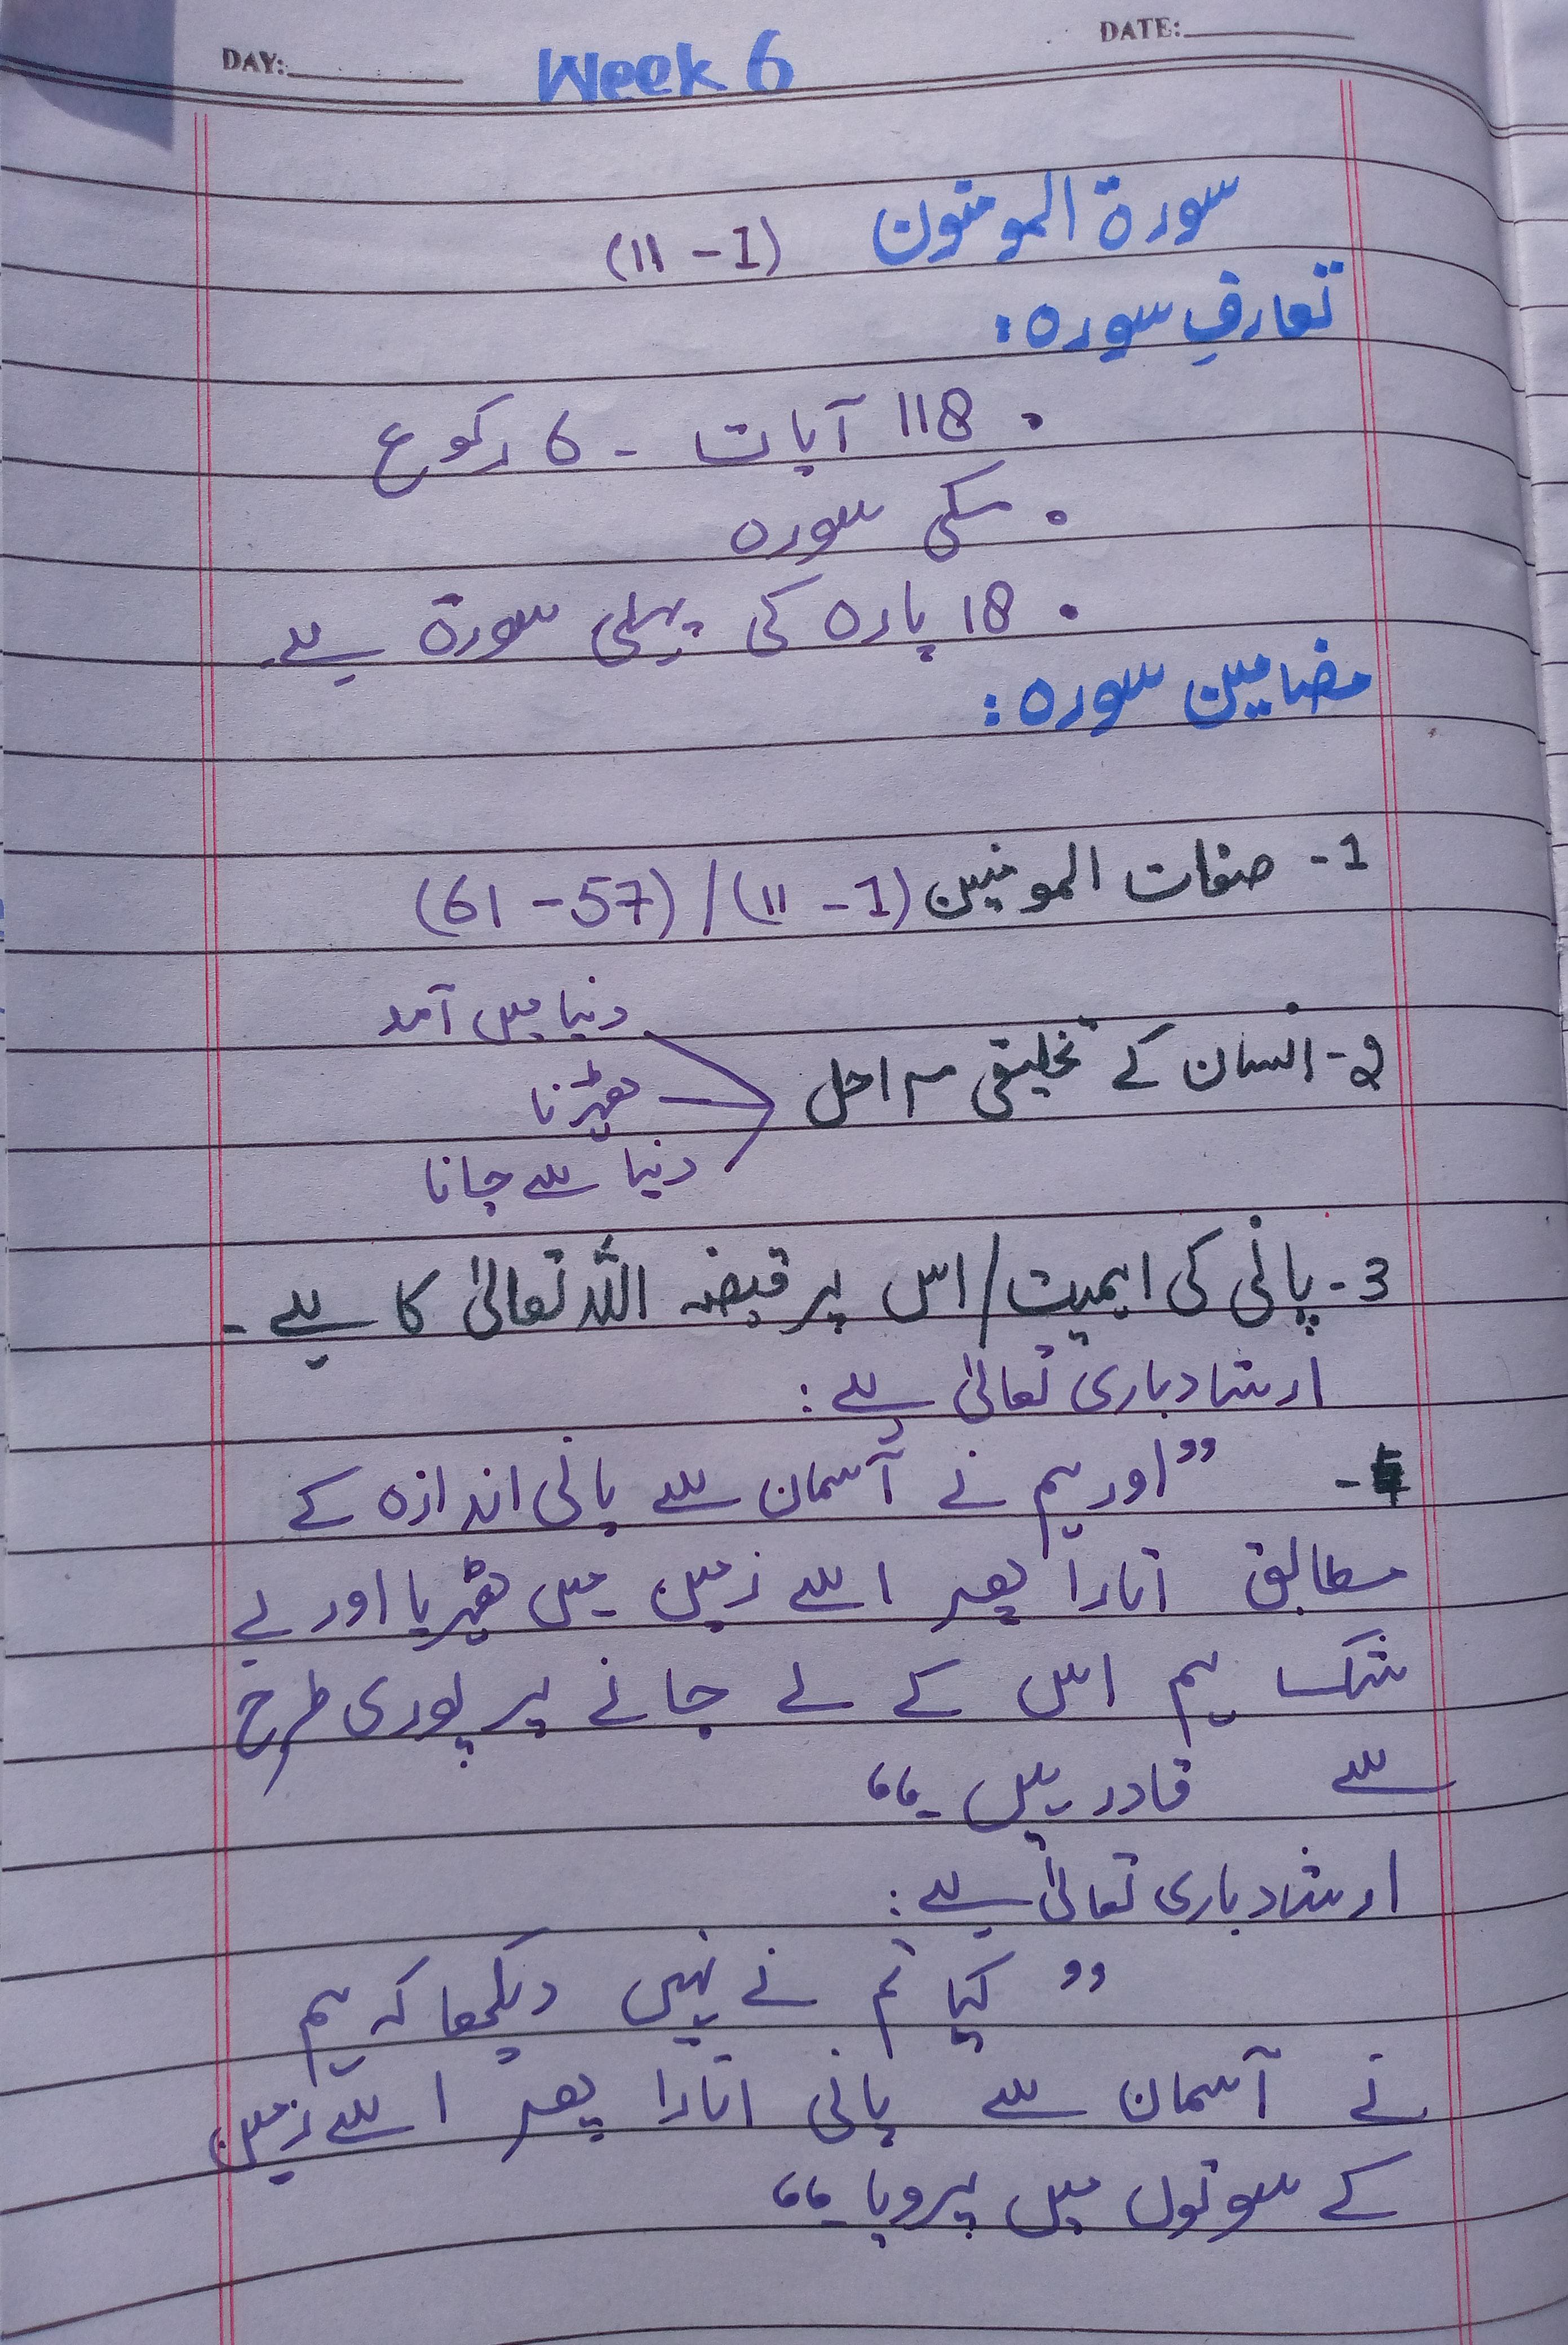 DAY: DATE:
Week 6
سورۃ المومنون (1 - 11)
تعارفِ سورہ:
• 118 آیات - 6 رکوع
• مکی سورہ
• 18 پارہ کی پہلی سورۃ ہے۔
مضامین سورہ:
1- صفات المومنین (1 - 11) / (57 - 61)
دنیا میں آمد
2- انسان کے تخلیقی مراحل
ٹھہرنا
دنیا سے جانا
3- پانی کی اہمیت/اس پر قبضہ اللہ تعالیٰ کا ہے -
ارشاد باری تعالیٰ ہے:
- ”اور ہم نے آسمان سے پانی اندازہ کے
مطابق اتارا پھر اسے زمین میں ٹھہریا اور بے
شک ہم اس کے لے جانے پر پوری طرح
سے قادر ہیں۔“
ارشاد باری تعالیٰ ہے:
”کیا تم نے نہیں دیکھا کہ ہم
نے آسمان سے پانی اتارا پھر اسے زمین
کے سوتوں میں پرویا۔“